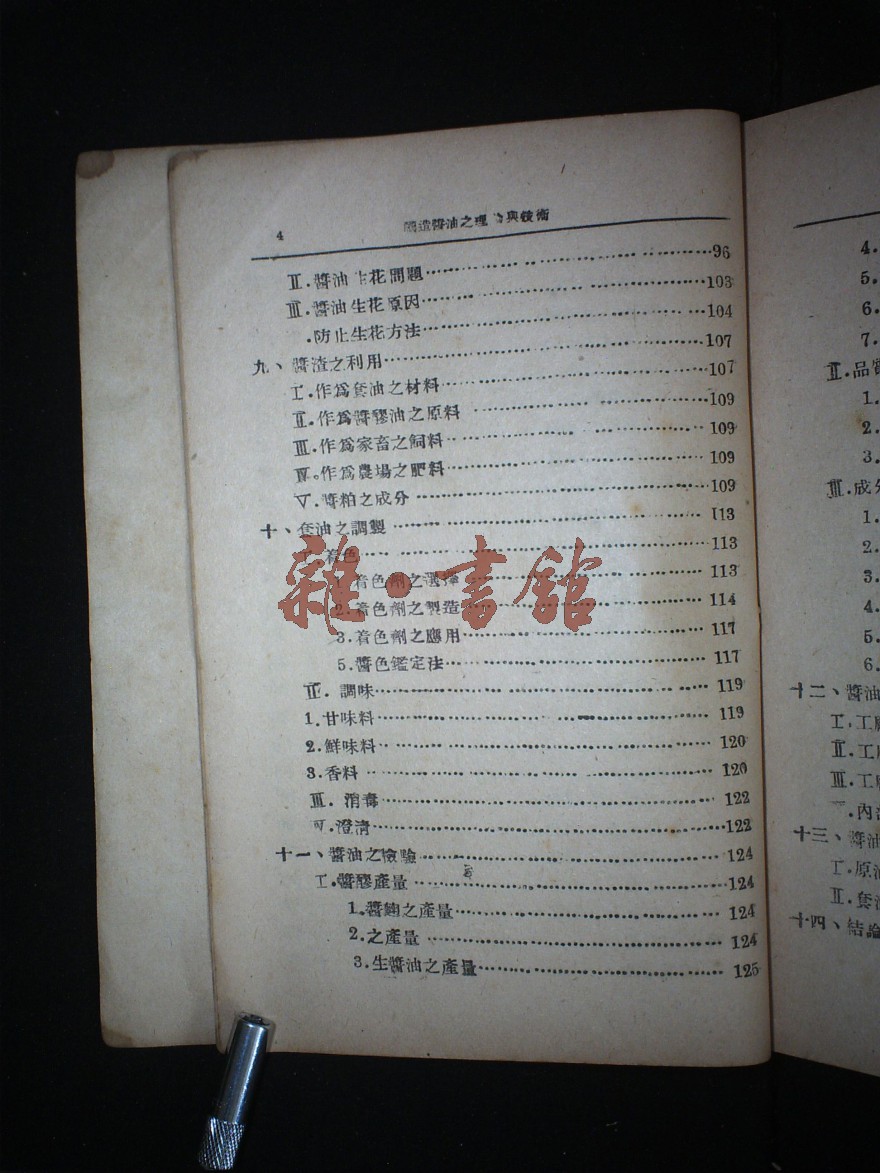 4 釀造醬油之理論與技術
Ⅱ.醬油生花問題 96
Ⅲ.醬油生花原因 103
.防止生花方法 104
九、醬渣之利用 107
Ⅰ.作爲套油之材料 107
Ⅱ.作爲醬醪油之原料 109
Ⅲ.作爲家畜之飼料 109
Ⅳ.作爲農場之肥料 109
Ⅴ.醬粕之成分 109
十、套油之調製 113
Ⅰ.着色 113
1.着色劑之選擇 113
2.着色劑之製造 114
3.着色劑之應用 117
5.醬色鑑定法 117
Ⅱ.調味 119
1.甘味料 119
2.鮮味料 120
3.香料 120
Ⅲ.消毒 122
Ⅳ.澄清 122
十一、醬油之檢驗 124
Ⅰ.醬醪產量 124
1.醬麯之產量 124
2.之產量 124
3.生醬油之產量 125
雜·書館
4.
5.
6.
7.
Ⅱ.品質
1.
2.
3.
Ⅲ.成分
1.
2.
3.
4.
5.
6.
十二、醬油
Ⅰ.工廠
Ⅱ.工
Ⅲ.工
.內
十三、醬油
Ⅰ.原油
Ⅱ.套油
十四、結論